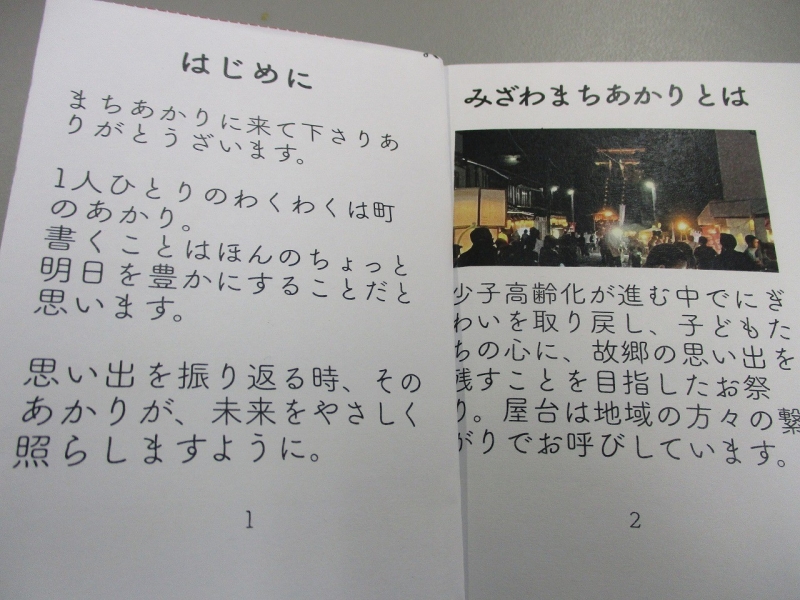 はじめに
まちあかりに来て下さりあ
りがとうざいます。
1人ひとりのわくわくは町
のあかり。
書くことはほんのちょっと
明日を豊かにすることだと
思います。
思い出を振り返る時、その
あかりが、未来をやさしく
照らしますように。
1
みざわまちあかりとは
少子高齢化が進む中でにぎ
わいを取り戻し、子どもた
ちの心に、故郷の思い出を
残すことを目指したお祭
り。屋台は地域の方々の繋
がりでお呼びしています。
2